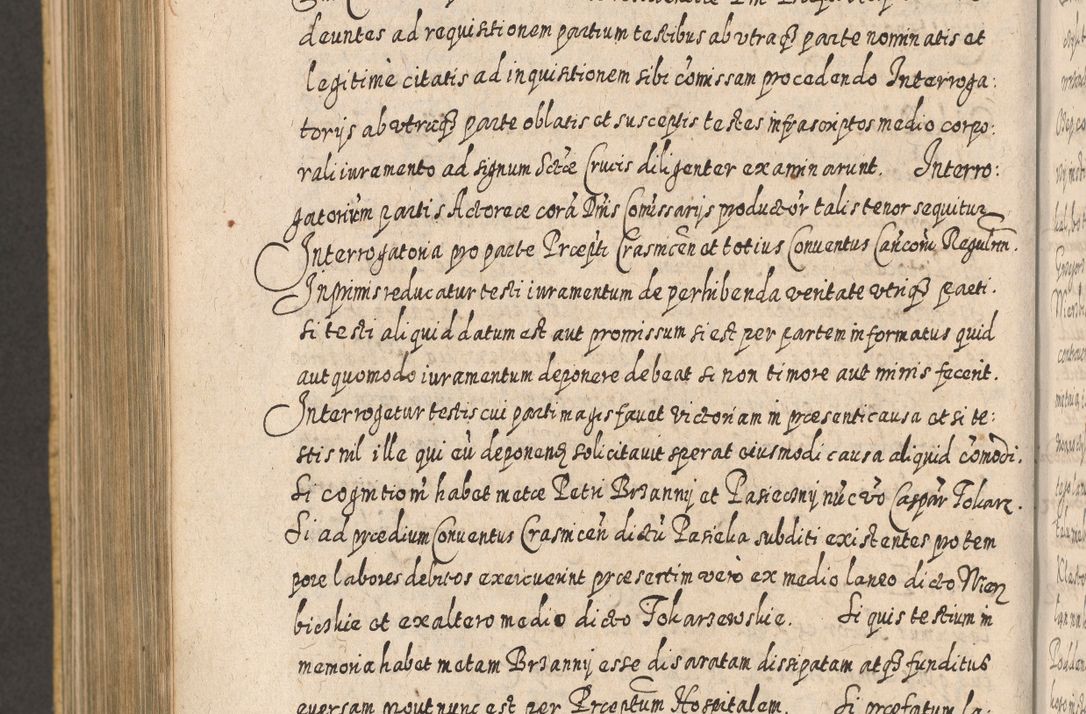 deuntes ad requisitionem partium testibus ab vtraq3 parte nominatis et
legitimè citatis ad inquisitionem sibi cōmissam procedendo Interroga:
torijs ab vtraq3 parte oblatis et susceptis testes infrascriptos medio corpo:
rali iuramento ad signum Sctæ Crucis diligenter examinarunt. Interro:
gatorium partis Actoreæ corā Dnis Comissarijs productor talis tenor sequitur
Interrogatoria pro parte Præpti Crasmiceñ et totius Conventus Canconi Regulrm.
Inprimis reducatur testi iuramentum de perhibenda veritate vtriq3 parti.
Si testi aliquid datum est aut promissum si est per partem informatus quid
aut quomodo iuramentum deponere debeat si non timore aut minis fecerit.
Interrogetur testis cui parti magis favet victoriam in præsenti causa et si te:
stis nil ille qui eū deponens solicitauit sperat eiusmodi causa aliquid cōmodi.
Si cognitioni habet metæ Petri Brzanny et Pasieczny nūc vō Caspar Tokarz.
Si ad prædium Conventus Crasmiceñ dictū Pasieka subditi existentes pro tem
pore labores debitos exercuerint præsertim vero ex medio laneo dicto Wierz
bieskie et ex altero medio dicto Tokarzewskie. Si quis testium in
memoria habet metam Brzanny esse disaratam dissipatam atq3 funditus
eversam prout nunc est per Præptum Hospitalem. Si præfatum la: